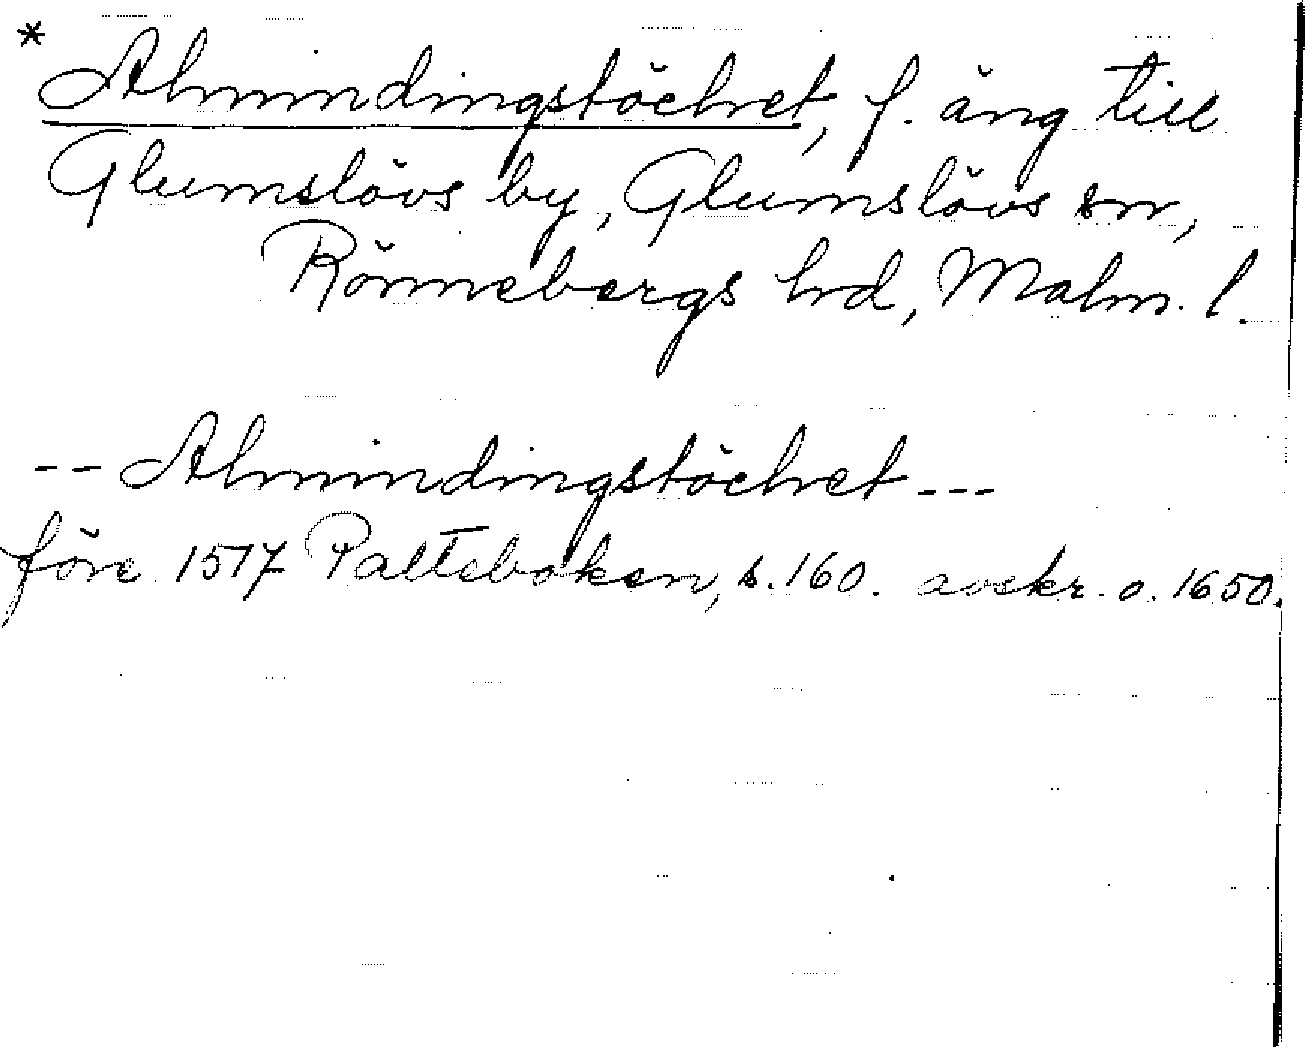 * Almindingstöchet, f. äng till
Glumslövs by, Glumslövs sn,
Rönnebergs hd, Malm. l.
-- Almindingstöchet ---
före 1517 Palteboken, s. 160. avskr. o. 1650.